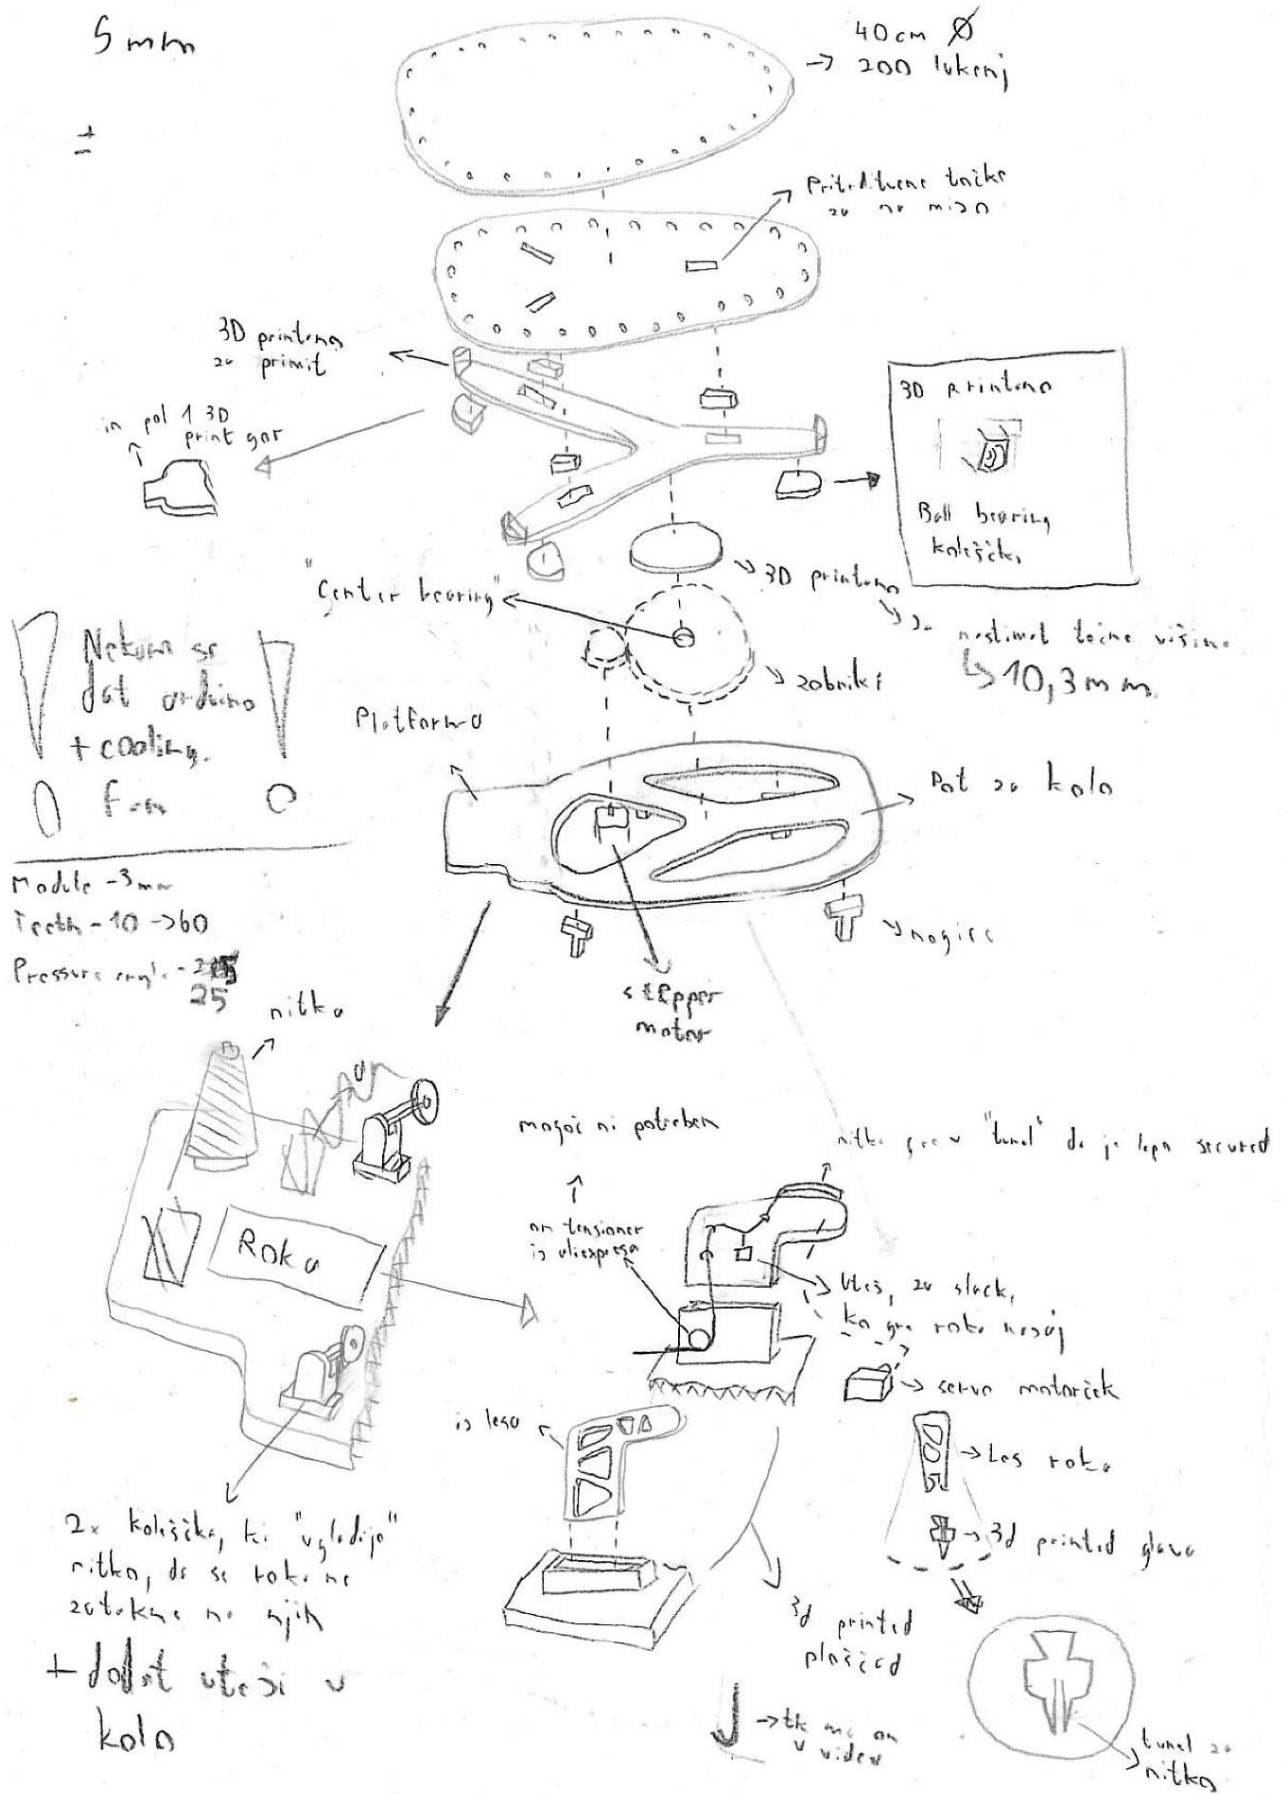 5 mm
40cm Ø
→ 200 lukenj
Pritrditvene točke
za na mizo
3D printano
za primit
in pol 1 3D
print gor
3D printano
Ball bearing
kolešček
"Center bearing"
3D printano
za nastimat točno višino
10,3 mm
zobniki
Nekam se
dat arduino
+ cooling
fan
Platforma
Pot za kolo
Module - 3mm
Teeth - 10 → 60
Pressure angle -
25
nogice
stepper
motor
nitka
mogoč ni potreben
nitka gre v "tunel" da je lepo secured
an tensioner
iz aliexpresa
Roka
Utež, za slack,
ko gre roka nazaj
servo motorček
iz lesa
Les roka
3d printed glava
2x koleščka, ki "vgladijo"
nitko, da se roka ne
zatakne na njih
+ dodat uteži v
kolo
3d printed
plošćad
→ tk me on
v videu
tunel za
nitko